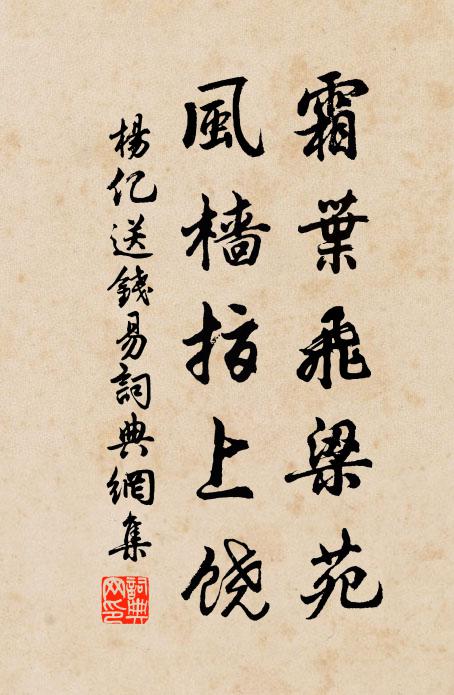 霜葉飛梁苑
風檣指上饶
楊亿送錢易詞典網集
詞典网印